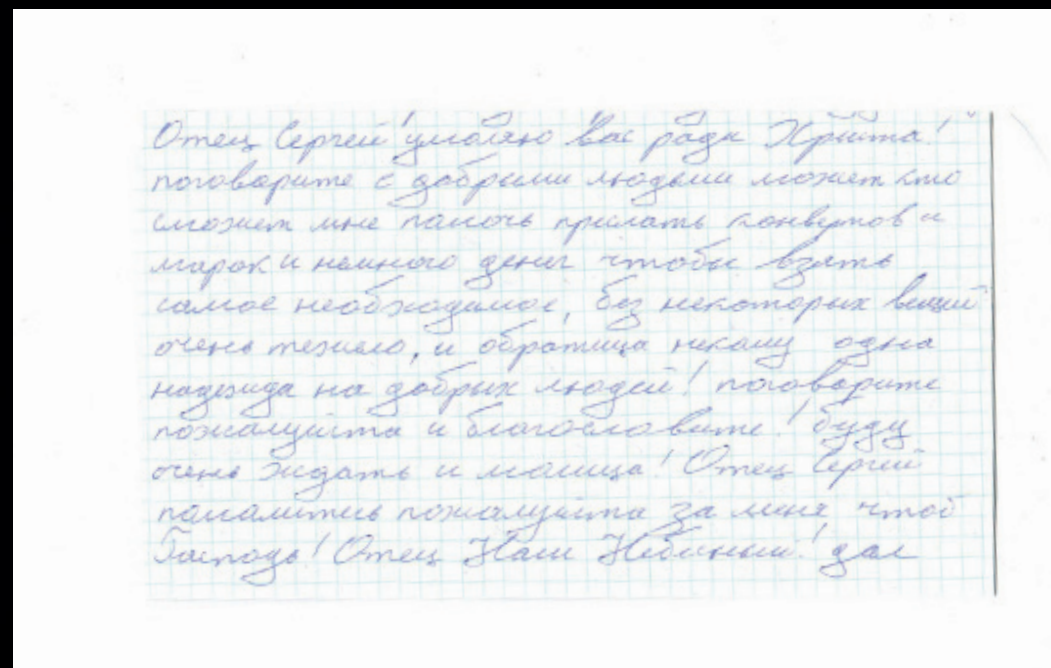 Отец Сергей! умоляю вас ради Христа!
поговорите с добрыми людьми может кто
сможет мне памочь прислать конвертов и
марок и немного денег чтобы взять
самое необходимое, без некоторых вещий
очень тежело, и обратица некому одна
надежда на добрых людей! поговорите
пожалуйста и благословите! буду
очень ждать и молица! Отец Сергий
памалитись пожалуйста за меня чтоб
Господь! Отец Наш Небесный! дал